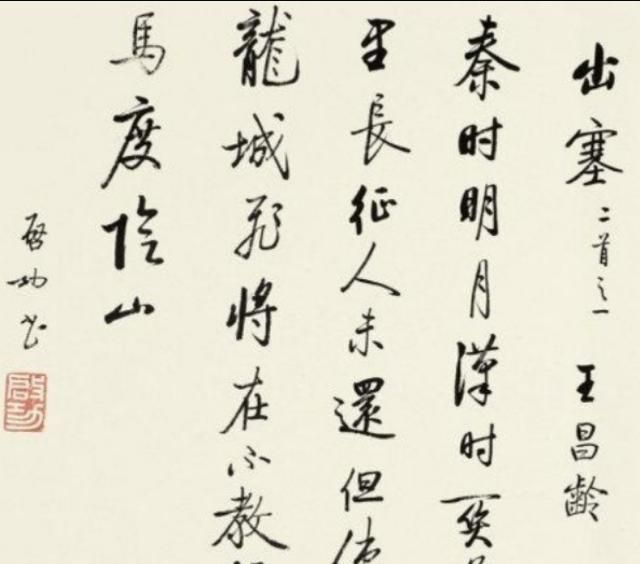 出塞 二首之一 王昌齡
秦时明月漢时関
里長征人未還但使
龍城飛將在不教
馬度陰山
啓功书
啟功